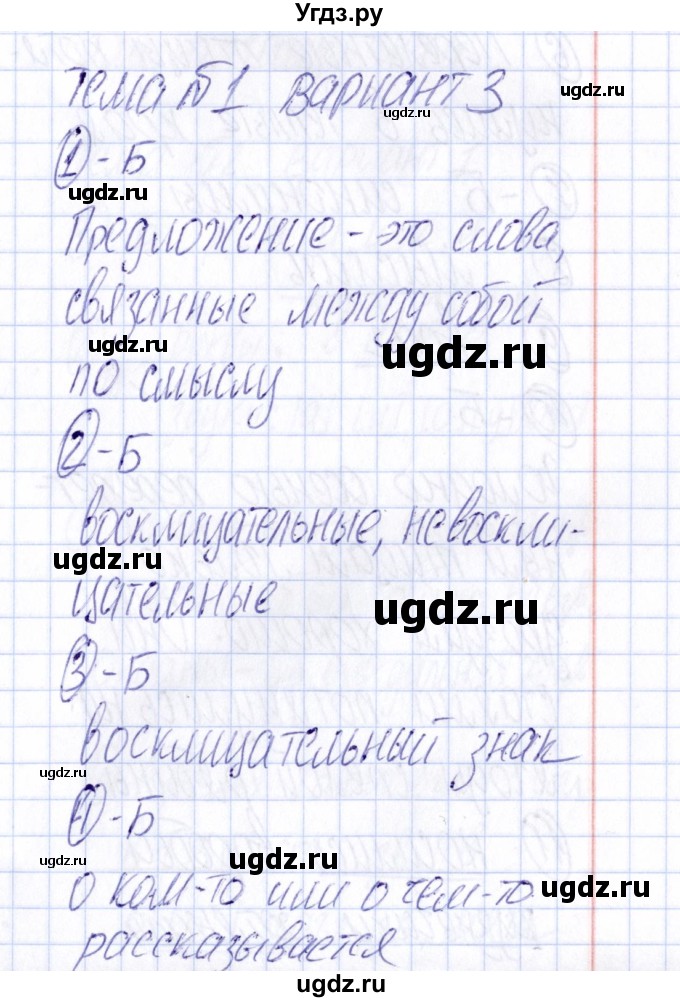 Угдз.ру
тема №1 вариант 3
ugdz.ru
ugdz.ru
① - Б
ugdz.ru
Предложение - это слова,
связанные между собой
ugdz.ru
ugdz.ru
по смыслу
② - Б
восклицательные, невоскли-
ugdz.ru
цательные
ugdz.ru
③ - Б
восклицательный знак
ugdz.ru
① - Б
ugdz.ru
ugdz.ru
о ком-то или о чем-то
ugdz.ru
рассказывается
ugdz.ru